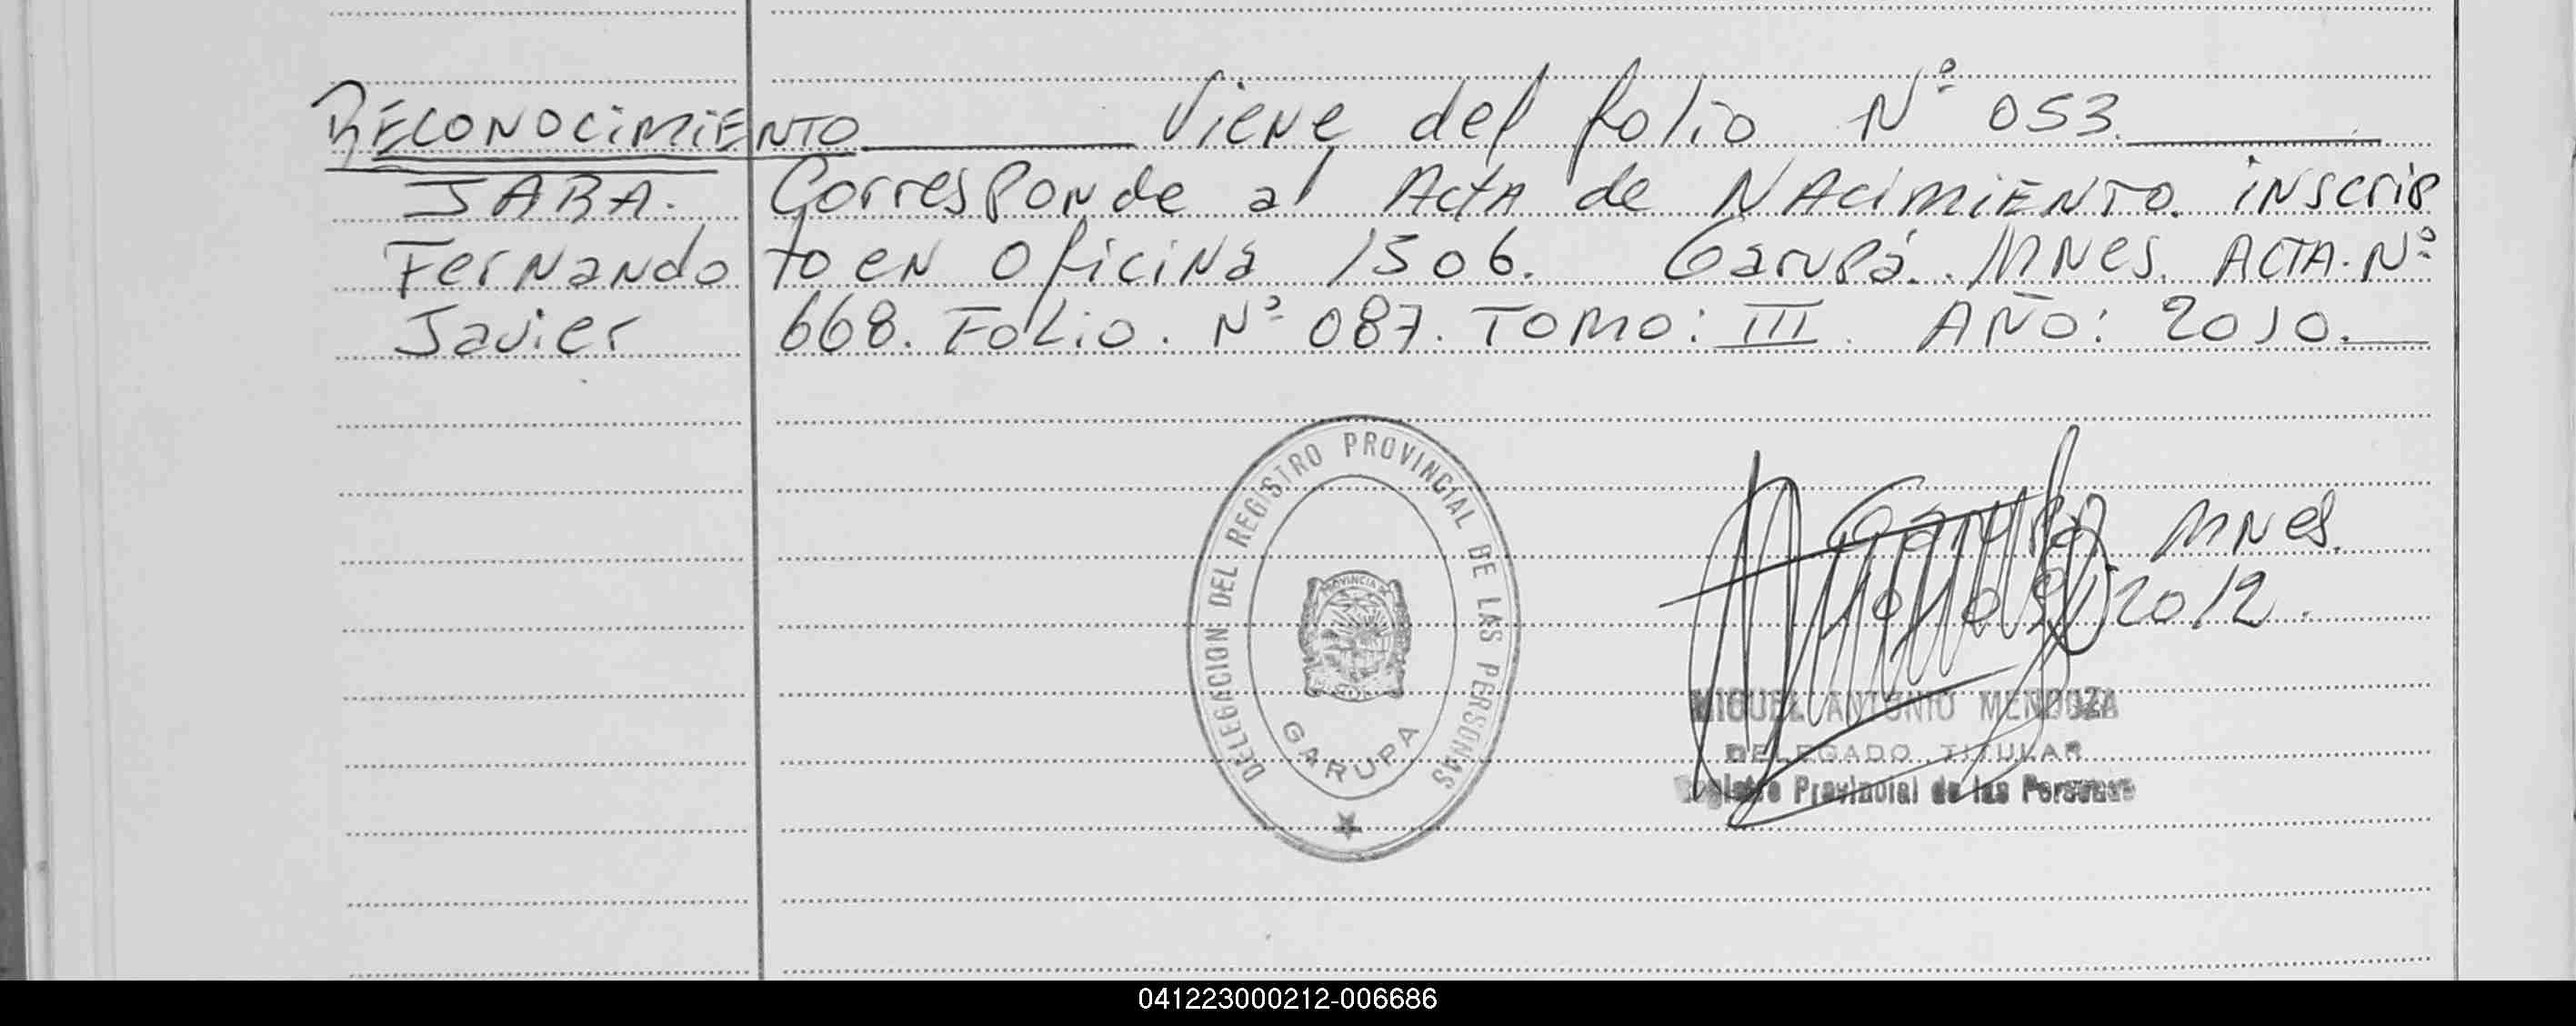 RECONOCIMIENTO Viene del folio Nº 053.
JARA. Corresponde al Acta de NAcimiENTO. inscrip
Fernando to en Oficina 1506. Garupá. MNes. ACTA. Nº
Javier 668. Folio. Nº 087. Tomo: III. AÑO: 2010.
DELEGACION DEL REGISTRO PROVINCIAL DE LAS PERSONAS
PROVINCIA
GARUPA
Garupá MNes.
2012.
MIGUEL ANTONIO MENDOZA
DELEGADO TITULAR
Registro Provincial de las Personas
041223000212-006686